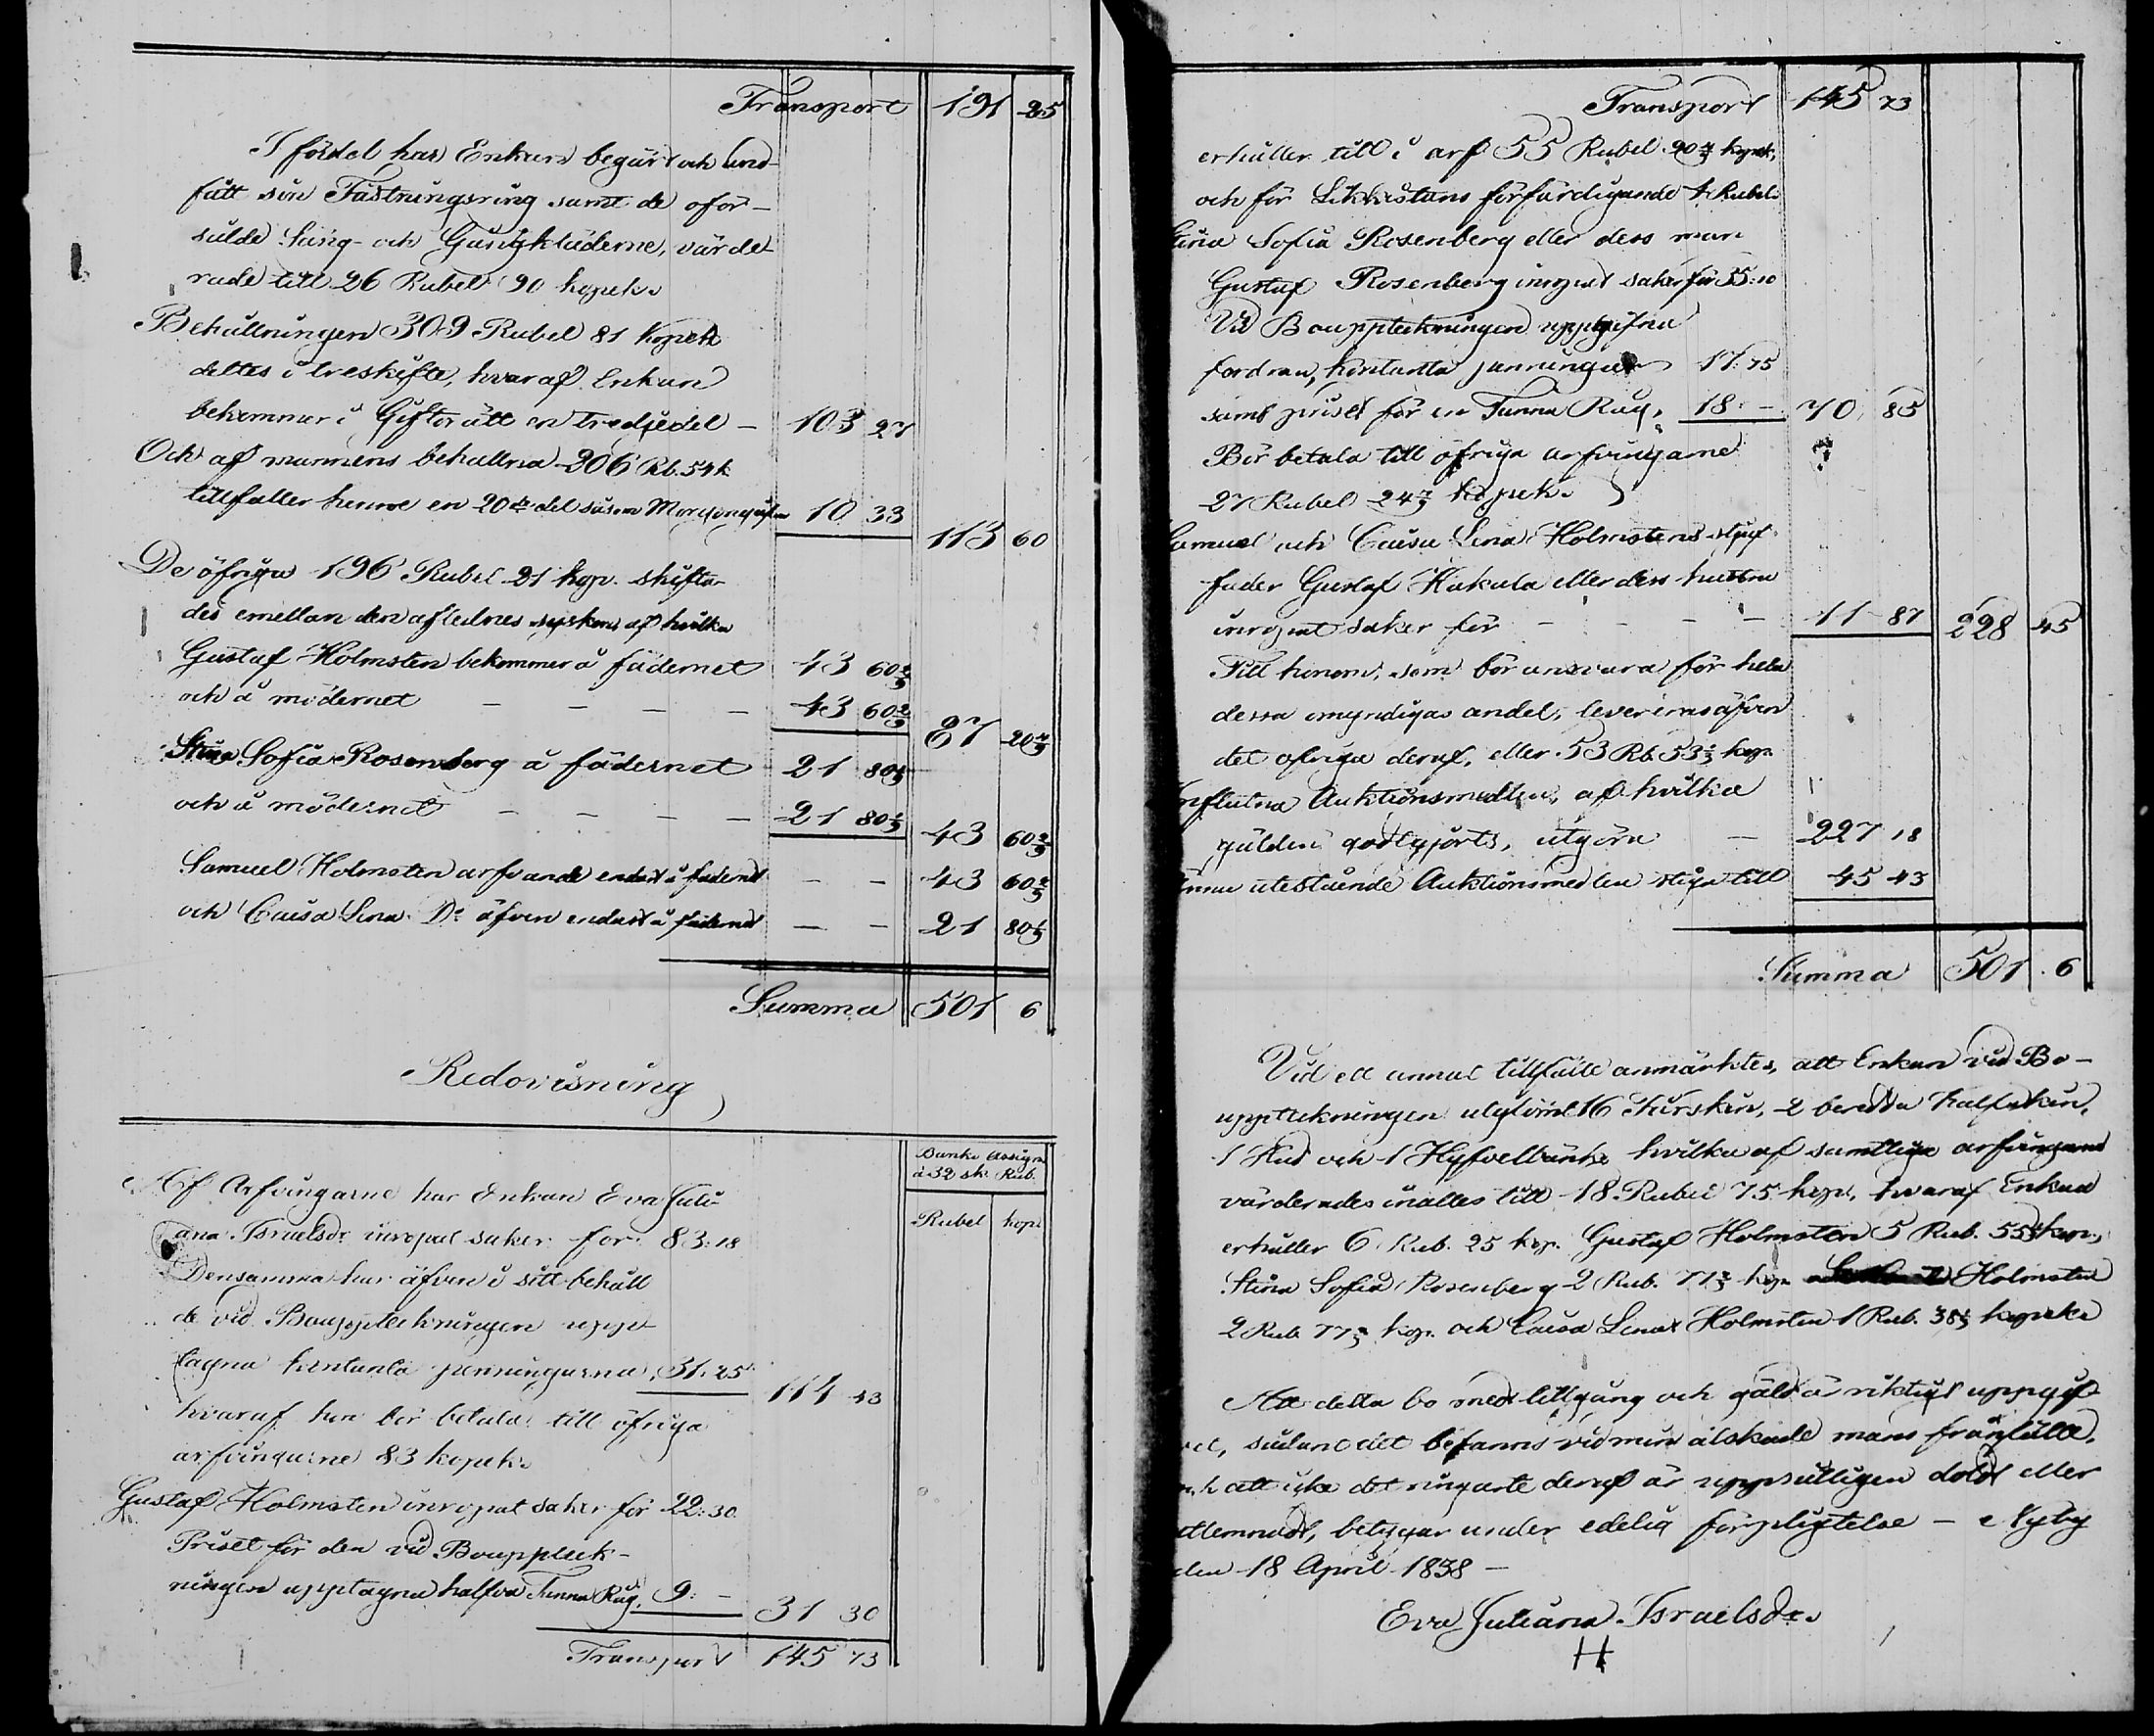 Transport 191 25
I fördel har Enkan begärt och und-
fått sin Fästningsring samt de oför-
sålde Säng- och Gångkläderne, värde-
rade till 26 Rubel 90 kopek.
Behållningen 309 Rubel 81 kopek
deltes i treskifte, hvaraf Enkan
bekommer i Giftorätt en tredjedel – 103 27
Och af mannens behållna 206 Rb. 54 k.
tillfaller henne en 20de del såsom Morgongåfva 10 33
113 60
De öfriga 196 Rubel 21 kop. skifta-
des emellan den aflednes syskon af hvilka
Gustaf Holmsten bekommer å fädernet 43 60 2/9
och å mödernet – – – – 43 60 2/9
87 20 4/9
Stina Sofia Rosenberg å fädernet 21 80 1/9
och å mödernet – – – – 21 80 1/9
43 60 2/9
Samuel Holmsten arfvande endast å fädernet – – 43 60 2/9
och Caisa Lina Do äfven endast å fädernet – – 21 80 1/9
Summa 501 6
Redovisning
Banko Assign.
à 32 sk. Rub.
Rubel kop.
Af Arfvingarne har Enkan Eva Juli-
ana Israelsdr. inropat saker för 83:18
Densamma har äfven i sitt behåll
de vid Bouppteckningen upp-
tagna kontanta penningarna, 31.25
114 43
hvaraf hon bör betala till öfriga
arfvingarne 83 kopek.
Gustaf Holmsten inropat saker för 22:30
Priset för den vid Boupptek-
ningen upptagna halfva Tunna Råg, 9: – 31 30
Transport 145 73
Transport 145 73
erhåller till i arf 55 Rubel 90 4/9 kopek,
och för Likkistans förfärdigande 4 Rubel.
Stina Sofia Rosenberg eller dess man
Gustaf Rosenberg inropat saker för 35:10
Vid Bouppteckningen uppgifna
fordran, kontanta penningar 17:75
samt priset för en Tunna Råg, 18: – 70 85
Bör betala till öfriga arfvingarne
27 Rubel 24 7/9 kopek.
Samuel och Caisa Lina Holmstens styf-
fader Gustaf Hakala eller dess hustru
inropat saker för – – – – 11 87 228 45
Till honom, som bör ansvara för hela
dessa omyndigas andel, levereras äfven
det öfriga deraf, eller 53 Rb. 53 1/3 kop.
Influtna Auktionsmedlen, af hvilka
gälden godtgjorts, utgöra – 227 18
Ännu utestående Auktionsmedlen stiga till 45 43
Summa 501 6
Vid ett annat tillfälle anmärktes, att Enkan vid Bo-
uppteckningen utglömt 16 Fårskin, 2 beredda Kalfskin,
1 Hud och 1 Hyfvelbänk hvilka af samtliga arfvingarne
värderades inalles till 18 Rubel 75 kop., hvaraf Enkan
erhåller 6 Rub. 25 kop. Gustaf Holmsten 5 Rub. 55 5/9 kop.,
Stina Sofia Rosenberg 2 Rub. 77 7/9 kop. Holmsten
2 Rub. 77 7/9 kop. och Caisa Lina Holmsten 1 Rub. 38 8/9 kopek.
Att detta bo med tillgång och gäld är riktigt uppgif-
vet, sådant det befanns vid min älskade mans frånfälle,
och att icke det ringaste deraf är uppsåtligen doldt eller
utlemnadt, betygar under edelig förpligtelse – Nyby
den 18 April 1838 –
Eva Juliana Israelsdr.